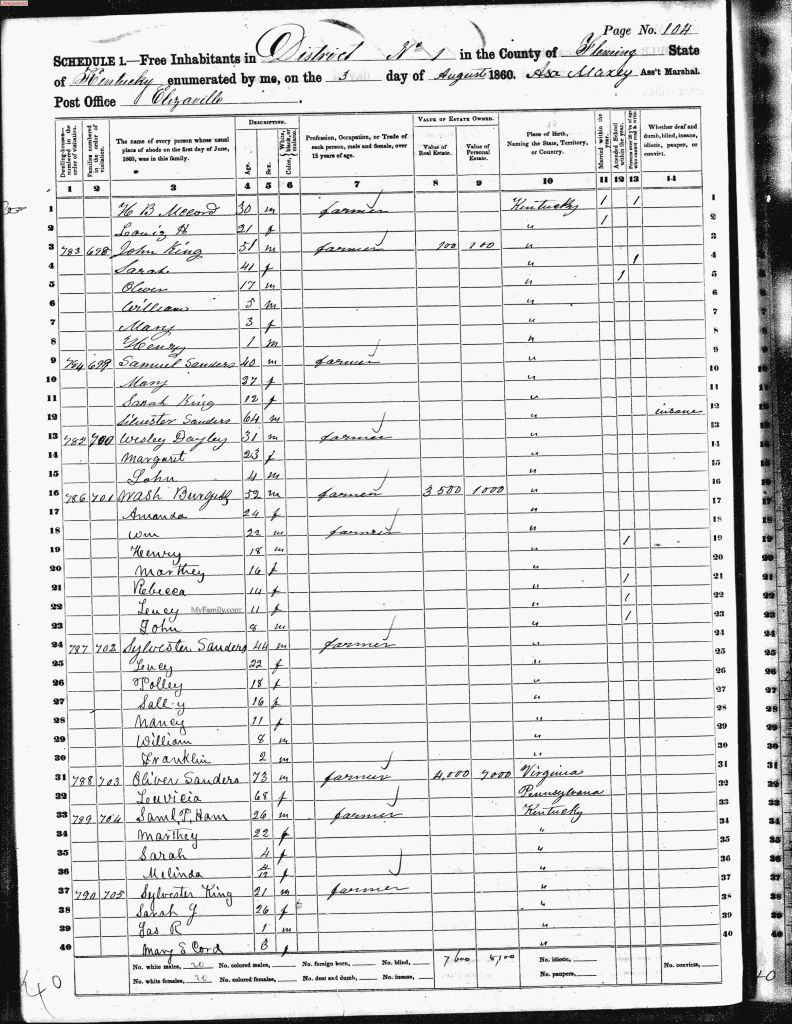 Page No. 104
SCHEDULE 1.—Free Inhabitants in District No 1 in the County of Fleming State
of Kentucky enumerated by me, on the 3 day of August 1860. Asa Maxey Ass't Marshal.
Post Office Elizaville
Dwelling-houses numbered in the order of visitation.
Families numbered in the order of visitation.
The name of every person whose usual place of abode on the first day of June, 1860, was in this family.
DESCRIPTION.
Age.
Sex.
Color, White, black, or mulatto.
Profession, Occupation, or Trade of each person, male and female, over 15 years of age.
VALUE OF ESTATE OWNED.
Value of Real Estate.
Value of Personal Estate.
Place of Birth, Naming the State, Territory, or Country.
Married within the year.
Attended School within the year.
Whether deaf and dumb, blind, insane, idiotic, pauper, or convict.
1 2 3 4 5 6 7 8 9 10 11 12 13 14
1 H B Mccord 30 m farmer Kentucky 1 1 1
2 21 f " 1 2
3 783 698 John King 51 m farmer 100 100 " 3
4 Sarah 41 f " 1 4
5 Oliver 17 m " 1 5
6 William 5 m " 6
7 Mary 3 f " 7
8 Henry 1 m " 8
9 784 699 Samuel Sanders 40 m farmer " 9
10 Mary 27 f " 10
11 Sarah King 12 f " 11
12 Silvester Sanders 64 m " insane 12
13 782 700 Wesley Dayley 31 m farmer " 13
14 Margaret 23 f " 14
15 John 4 m " 15
16 786 701 Wash Burgess 52 m farmer 3500 1000 " 16
17 Amanda 24 f " 17
18 Wm 22 m farmer " 18
19 Henry 18 m " 1 19
20 Marthey 16 f " 20
21 Rebecca 14 f " 1 21
22 Lucy 11 f " 1 22
MyFamily.com
23 John 8 m " 1 23
24 787 702 Sylvester Sanders 44 m farmer " 24
25 Lucy 22 f " 25
26 Polley 18 f " 26
27 Sally 16 f " 27
28 Nancy 11 f " 28
29 William 8 m " 29
30 Franklin 2 m " 30
31 788 703 Oliver Sanders 73 m farmer 4,000 7000 Virginia 31
32 Louvicia 68 f Pennsylvana 32
33 789 704 Saml. T. Ham 26 m farmer Kentucky 33
34 Marthey 22 f " 34
35 Sarah 4 f " 35
36 Melinda 4/12 f " 36
37 790 705 Sylvester King 21 m farmer " 37
38 Sarah J 26 f " 38
39 Jas R 1 m " 39
40 Mary E Cord 3 f " 40
No. white males, 20 No. colored males, No. foreign born, No. blind, 7600 8,100 No. idiotic, No. convicts,
No. white females, 20 No. colored females, No. deaf and dumb, No. insane, No. paupers,
40
40